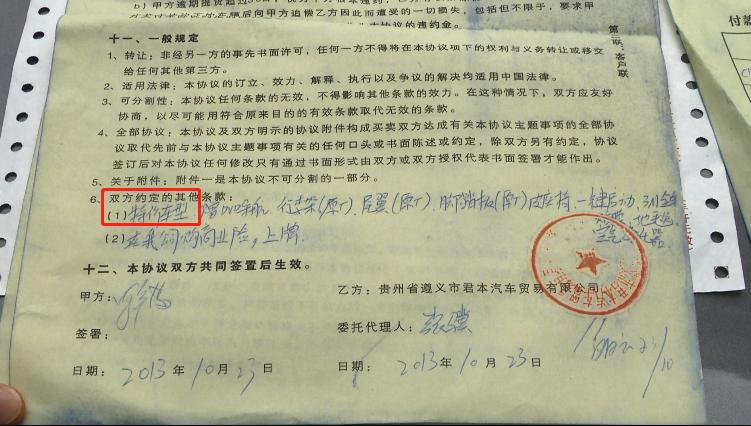 b）甲方逾期提货超过30
向甲方追偿乙方因此而遭受的一切损失，包括但不限于，要求甲
本协议的违约金。
十一、一般规定
1、转让：非经另一方的事先书面许可，任何一方不得将在本协议项下的权利与义务转让或移交
给任何其他第三方。
2、适用法律：本协议的订立、效力、解释、执行以及争议的解决均适用中国法律。
3、可分割性：本协议任何条款的无效，不得影响其他条款的效力。在这种情况下，双方应友好
协商，以尽可能用符合原来目的的有效条款取代无效的条款。
4、全部协议：本协议及双方明示的协议附件构成买卖双方达成有关本协议主题事项的全部协
议取代先前与本协议主题事项有关的任何口头或书面陈述或约定，除双方另有约定，协议
签订后对本协议任何修改只有通过书面形式由双方或双方授权代表书面签署才能作出。
5、关于附件：附件一是本协议不可分割的一部分。
6、双方约定的其他条款：
（1）特价车型 行李架（原厂）尾翼（原厂）脚踏板（原厂）一键启动
（2）在我公司购商业险，上牌
十二、本协议双方共同签署后生效。
甲方：
乙方：贵州省遵义市君本汽车贸易有限公司
签署：
委托代理人：
日期：2013年10月23日
日期：2013年10月23日
第二联：客户联
付款